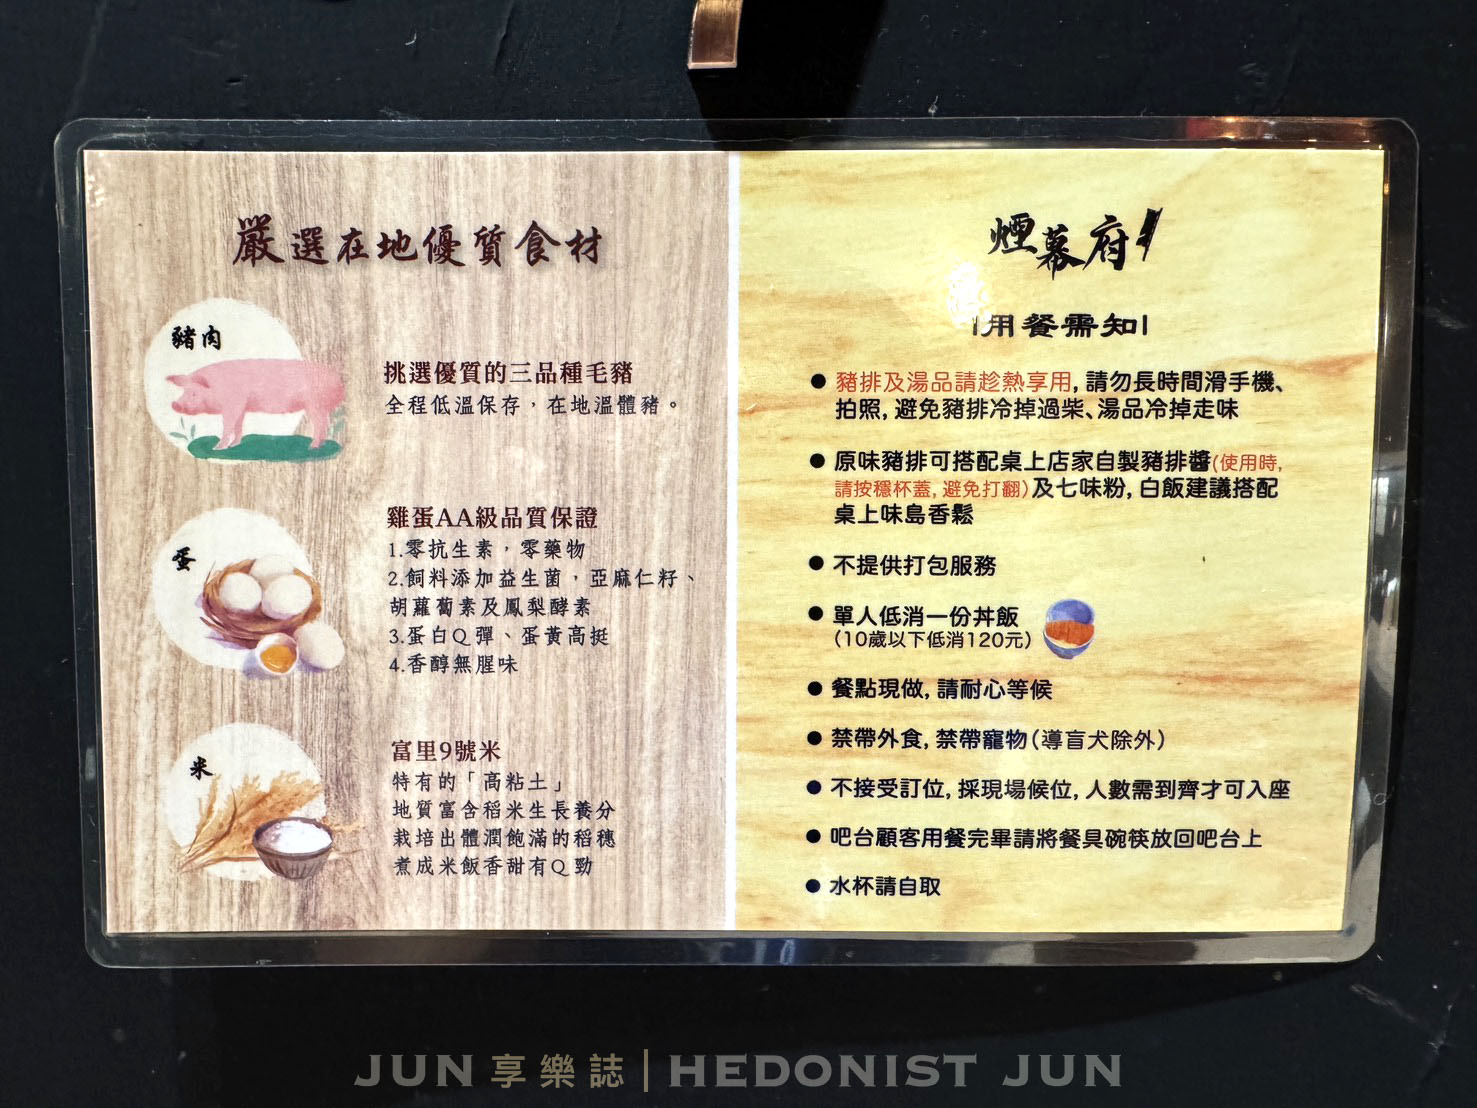 嚴選在地優質食材
豬肉
挑選優質的三品種毛豬
全程低溫保存，在地溫體豬。
蛋
雞蛋AA級品質保證
1.零抗生素，零藥物
2.飼料添加益生菌，亞麻仁籽、
胡蘿蔔素及鳳梨酵素
3.蛋白Q彈、蛋黃高挺
4.香醇無腥味
米
富里9號米
特有的「高粘土」
地質富含稻米生長養分
栽培出體潤飽滿的稻穗
煮成米飯香甜有Q勁
煙幕府
用餐需知
● 豬排及湯品請趁熱享用, 請勿長時間滑手機、
拍照, 避免豬排冷掉過柴、湯品冷掉走味
● 原味豬排可搭配桌上店家自製豬排醬(使用時,
請按穩杯蓋, 避免打翻)及七味粉, 白飯建議搭配
桌上味島香鬆
● 不提供打包服務
● 單人低消一份丼飯
(10歲以下低消120元)
● 餐點現做, 請耐心等候
● 禁帶外食, 禁帶寵物(導盲犬除外)
● 不接受訂位, 採現場候位, 人數需到齊才可入座
● 吧台顧客用餐完畢請將餐具碗筷放回吧台上
● 水杯請自取
JUN 享樂誌 | HEDONIST JUN